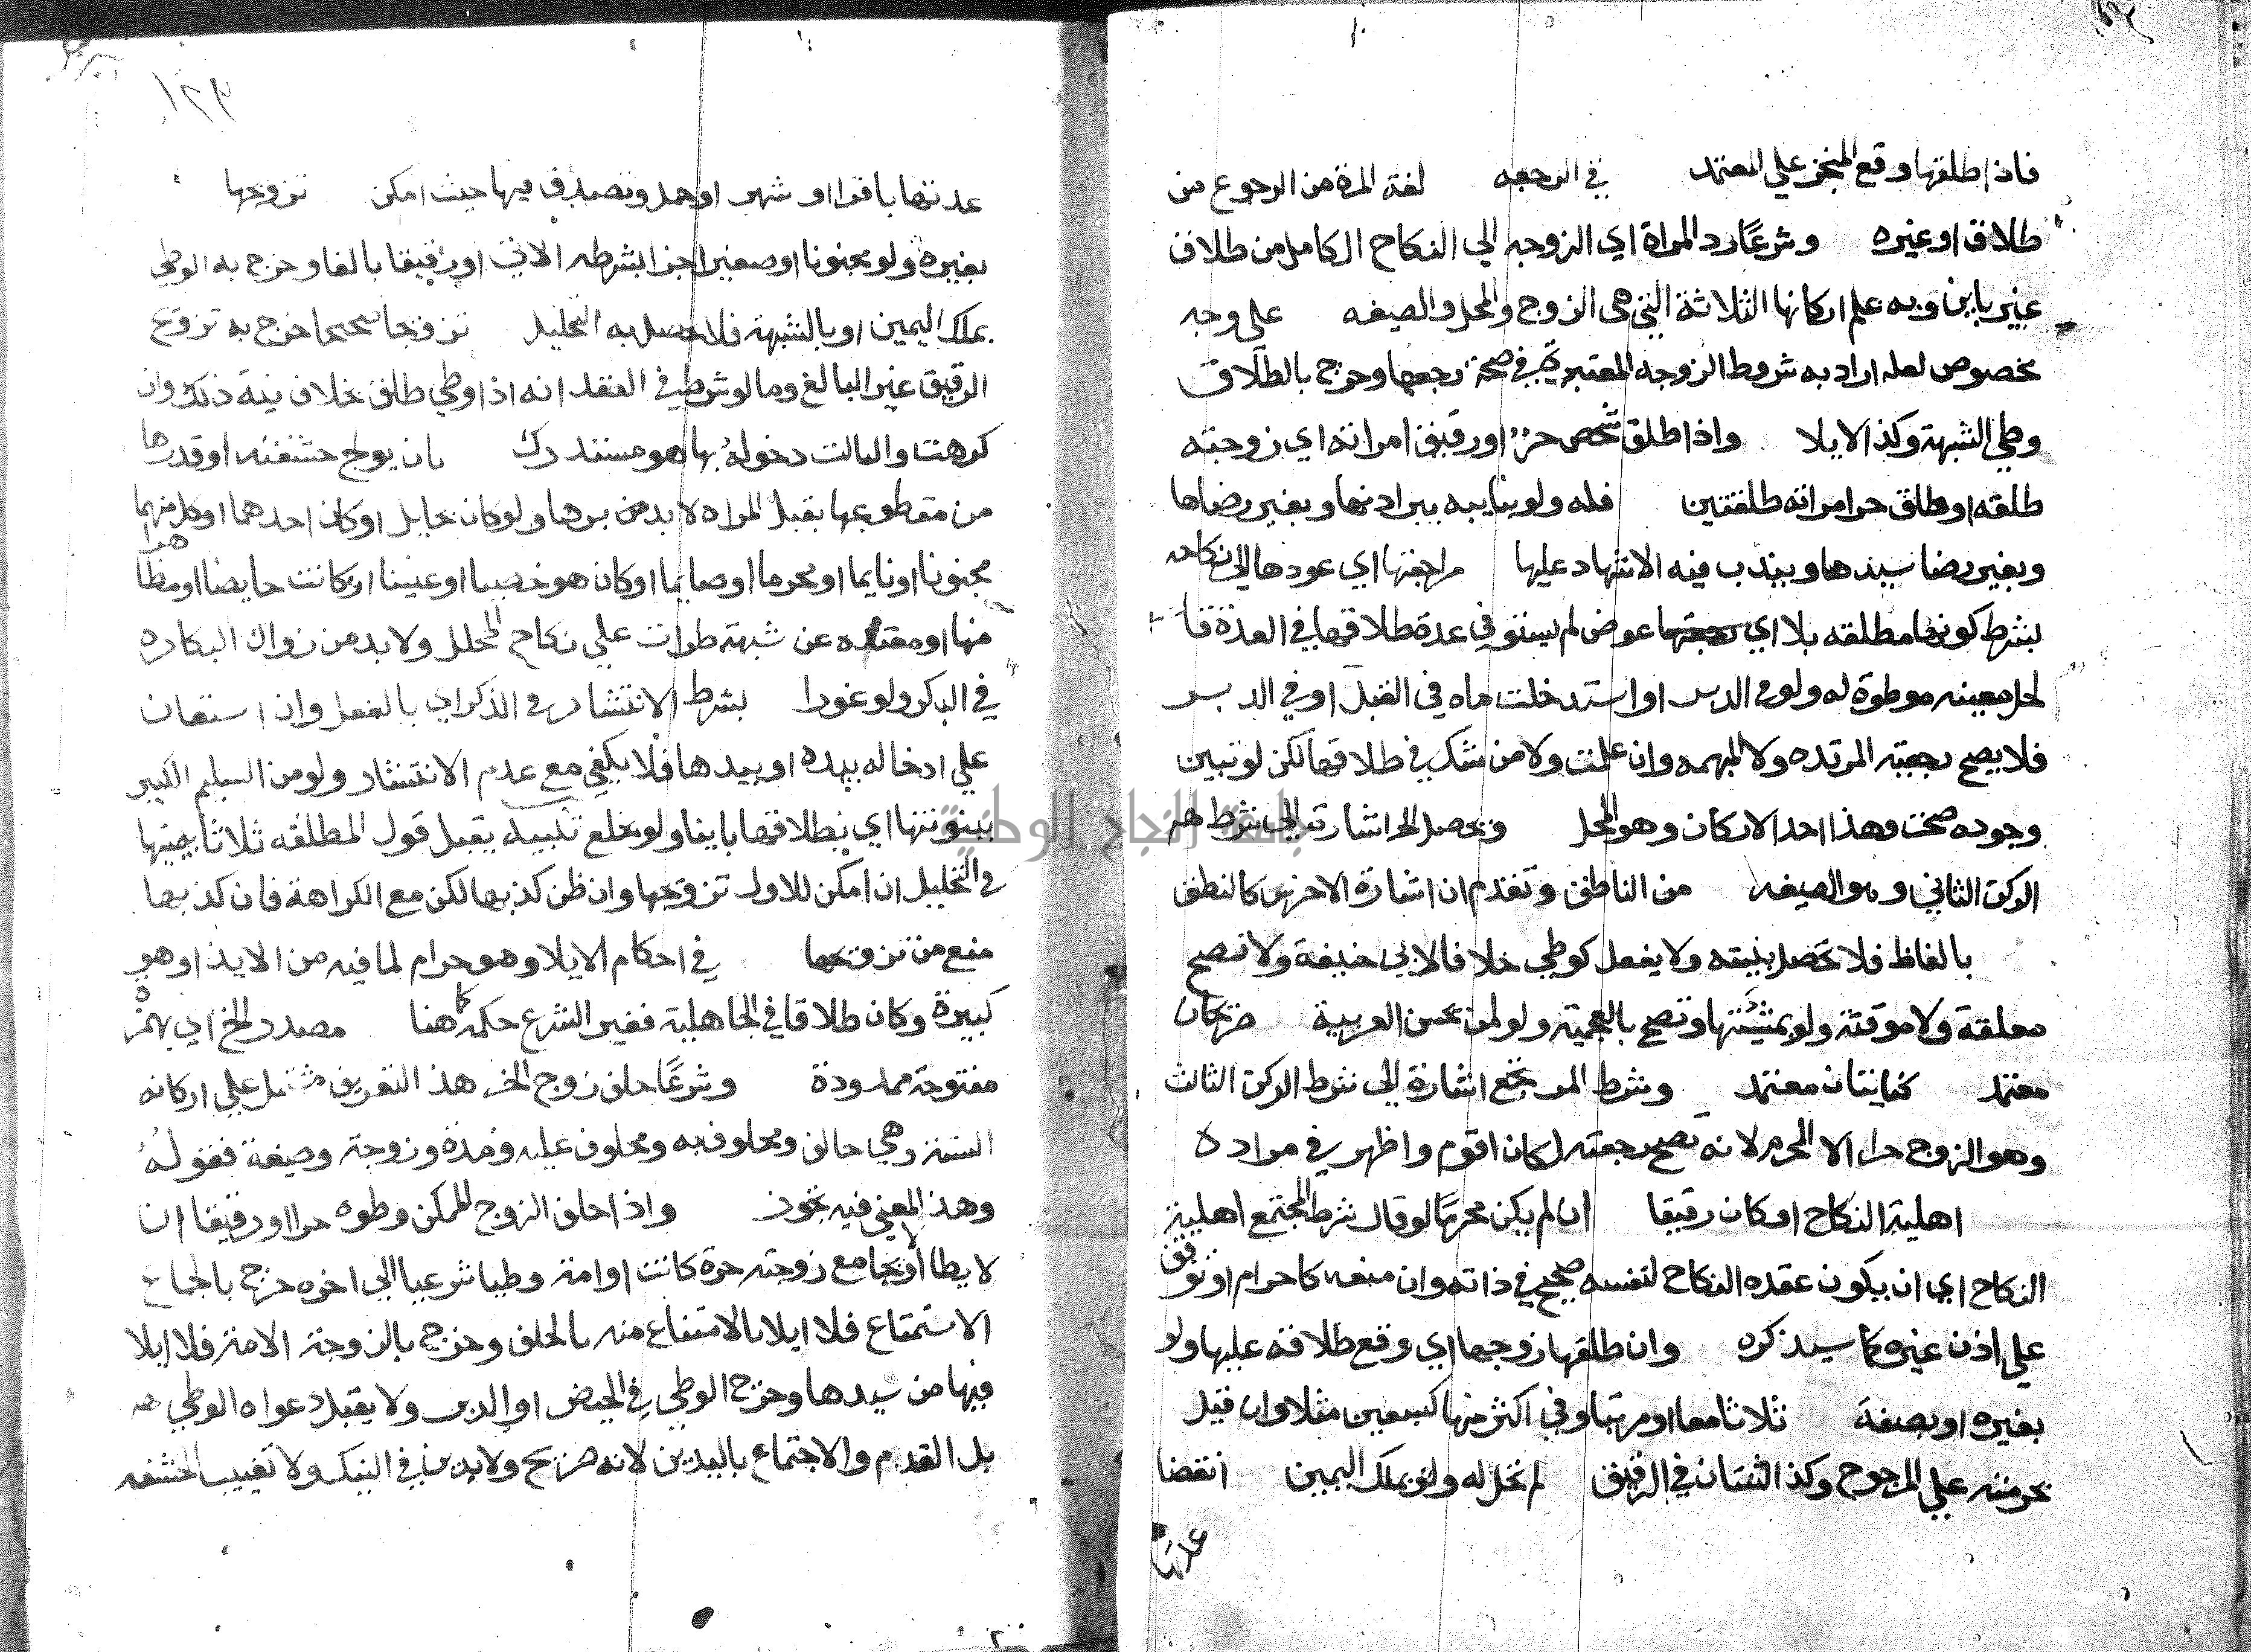 فاذا طلقها وقع المنجز علي المعتمد في الرجعه لغة المرة من الرجوع من
طلاق او غيره وشرعًا رد المراة اي الزوجه الي النكاح الكامل من طلاق
غير باين وبه علم اركانها الثلاثة التي هي الزوج والمحل والصيغه علي وجه
مخصوص لعله اراد به شروط الزوجه المعتبرة في صحة رجعتها وخرج بالطلاق
وطي الشبهة وكذا الايلا واذا طلق شخص حر او رقيق امراته اي زوجته
طلقه او طلق حر امراته طلقتين فله ولو بنايبه بغير اذنها وبغير رضاها
وبغير رضا سيدها ويندب فيه الاشهاد عليها مراجعتها اي عودها الي نكاحه
بشرط كونها مطلقه بلا اي عوض لم يستوفي عدة طلاقها في العدة قا
لحل معينه موطوة له ولو في الدبر او استدخلت ماه في القبل او في الدبر
فلا يصح رجعة المرتده ولا المبهمه وان علمت ولا من شك في طلاقها لكن لو تبين
وجوده صحت وهذا احد الاركان وهو المحل وتحصل الخ اشارة الي شرط
الركن الثاني وهو الصيغه من الناطق وتقدم ان اشارة الاخرس كالنطق
بالفاظ فلا تحصل بنيته ولا بفعل كوطي خلافا لابي حنيفة ولا تصح
معلقة ولا موقتة ولو بمشيئتها وتصح بالعجمية ولو لمن يحسن العربية صريحان
معتمد كنايتان معتمد وشرط المرتجع اشارة الي شرط الركن الثالث
وهو الزوج حرا الا المحرم لانه تصح رجعته لكان اقوم واظهر في مراده
اهلية النكاح او كان رقيقا ان لم يكن محرمًا لو قال شرط المجتمع اهلية
النكاح اي ان يكون عقده النكاح لنفسه صحيح في ذاته وان منعه كاحرام او توقف
علي اذن غيره كما سيذكره وان طلقها زوجها اي وقع طلاقه عليها ولو
بغيره او بصفة ثلاثا معا او مرتبا وفي اكثر منها كسبعين مثلا وان قيل
بحرمته علي المرجوح وكذا الثنتان في الرقيق لم تحل له ولو بملك اليمين انقضا
عدتها
١٢٩
عدتها باقرا او شهر او حمل وتصدق فيها حيث امكن تزوجها
بغيره ولو مجنونا او صغيرا حرا بشرطه الاتي او رقيقا بالغا وخرج به الوطي
بملك اليمين او بالشبهة فلا يحصل به التحليل تزوجا صحيحا خرج به تزوج
الرقيق غير البالغ وما لو شرط في العقد انه اذا وطي طلق بخلاف نية ذلك وان
كرهت والثالث دخوله بها هو مستدرك بان يولج حشفته او قدرها
من مقطوعها بقبل المراه لا بدمن برها ولو كان بحايل او كان احدهما او كل منهما
مجنونا او نايما او محرما او صايما او كان هو خصيا او عنينا او كانت حايضا او مظاهرا
منها او معتده عن شبهة طرات علي نكاح المحلل ولا بد من زوال البكاره
في البكر ولو غورا بشرط الانتشار في الذكر اي بالفعل وان استعان
علي ادخاله بيده او بيدها فلا يكفي مع عدم الانتشار ولو من السليم الكبير
بينونتها اي بطلاقها باينا ولو بخلع تنبيه يقبل قول المطلقه ثلاثا بيمينها
في التحليل ان امكن للاول تزوجها وان ظن كذبها لكن مع الكراهة فان كذبها
منع من تزوجها في احكام الايلا وهو حرام لما فيه من الايذا وهو
كبيرة وكان طلاقا في الجاهلية فغير الشرع حكمه كما هنا مصدر الخ اي بهمزة
مفتوحة ممدودة وشرعًا حلف زوج الخ هذا التعريف مشتمل علي اركانه
الستة وهي حالف ومحلوف به ومحلوف عليه ومدة وزوجة وصيغة فقوله
وهذا المعني فيه تجوز واذا حلف الزوج الممكن وطوه حرا او رقيقا ان
لا يطا او لا يجامع زوجته حرة كانت او امة وطيا شرعيا الي اخره خرج بالجماع
الاستمتاع فلا ايلا بالامتناع منه بالحلف وخرج بالزوجة الامة فلا ايلا
فيها من سيدها وخرج الوطي في الحيض او الدبر ولا يقبل دعواه الوطي
بل القدم والاجتماع باليدين لانه صريح ولا يدين في النيك ولا تغييب الحشفه
جامعة النجاح الوطنية